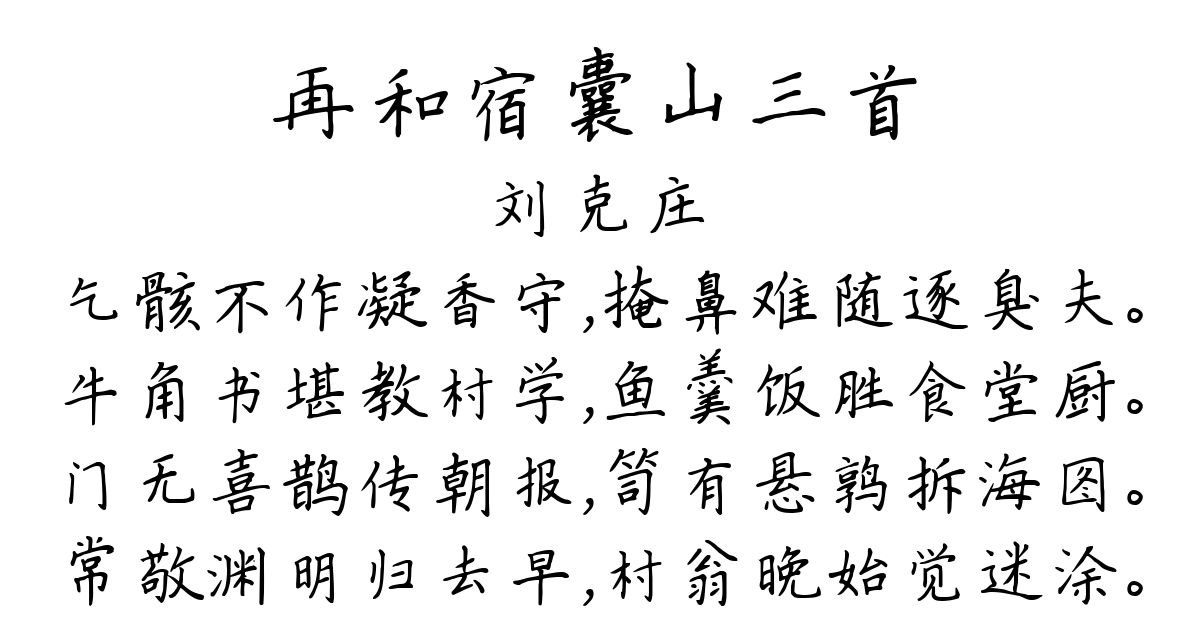 再和宿囊山三首
刘克庄
乞骸不作凝香守,掩鼻难随逐臭夫。
牛角书堪教村学,鱼羹饭胜食堂厨。
门无喜鹊传朝报,笥有悬鹑拆海图。
常敬渊明归去早,村翁晚始觉迷涂。